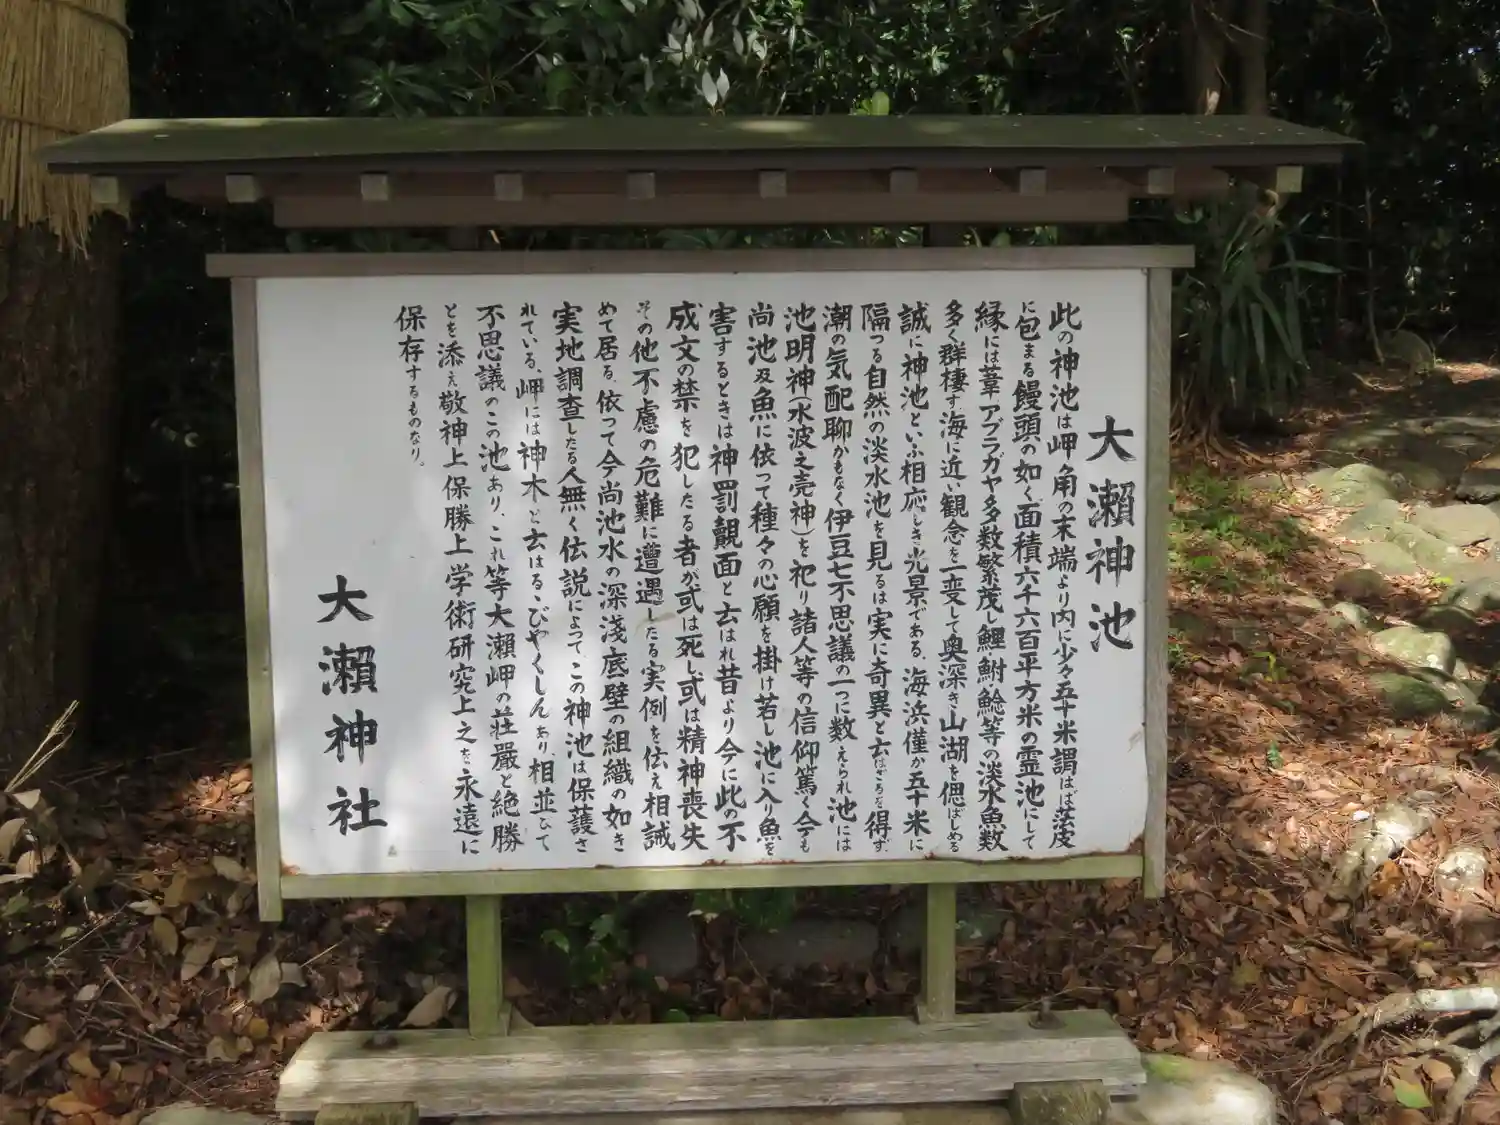 大瀬神池
此の神池は岬角の末端より内に少々五十米謂はば蓬廋
に包まる饅頭の如く、面積六千六百平方米の霊池にして
縁には葦アブラガヤ多数繁茂し鯉鮒鯰等の淡水魚数
多く群棲す海に近い観念を一変して奥深き山湖を偲ばしめる
誠に神池といふ相応しき光景である、海浜僅か五十米に
隔つる自然の淡水池を見るは実に奇異と云はざるを得ず、
潮の気配聊かもなく伊豆七不思議の一つに数えられ池には
池明神(水波之売神)を祀り諸人等の信仰篤く今も
尚池及魚に依って種々の心願を掛け若し池に入り魚を
害するときは神罰覿面と云はれ昔より今に此の不
成文の禁を犯したる者が或は死し或は精神喪失
その他不慮の危難に遭遇したる実例を伝え相誡
めて居る、依って今尚池水の深淺底壁の組織の如き
実地調査したる人無く伝説によって、この神池は保護さ
れている、岬には神木と云はるゝびやくしんあり、相並びて
不思議のこの池あり、これ等大瀬岬の荘嚴と絶勝
とを添え敬神上保勝上学術研究上之を永遠に
保存するものなり。
大瀬神社